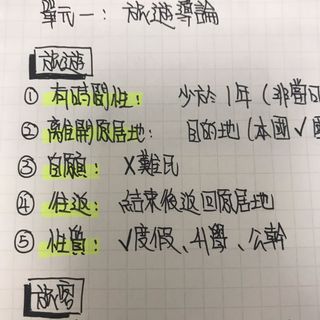 單元一：旅遊導論
旅遊
① 有時間性：少於1年(非當
② 離開原居地：目的地(本國✓
③ 自願：X難民
④ 往返：結束後返回原居地
⑤ 性質：✓度假、升學、公幹
旅客